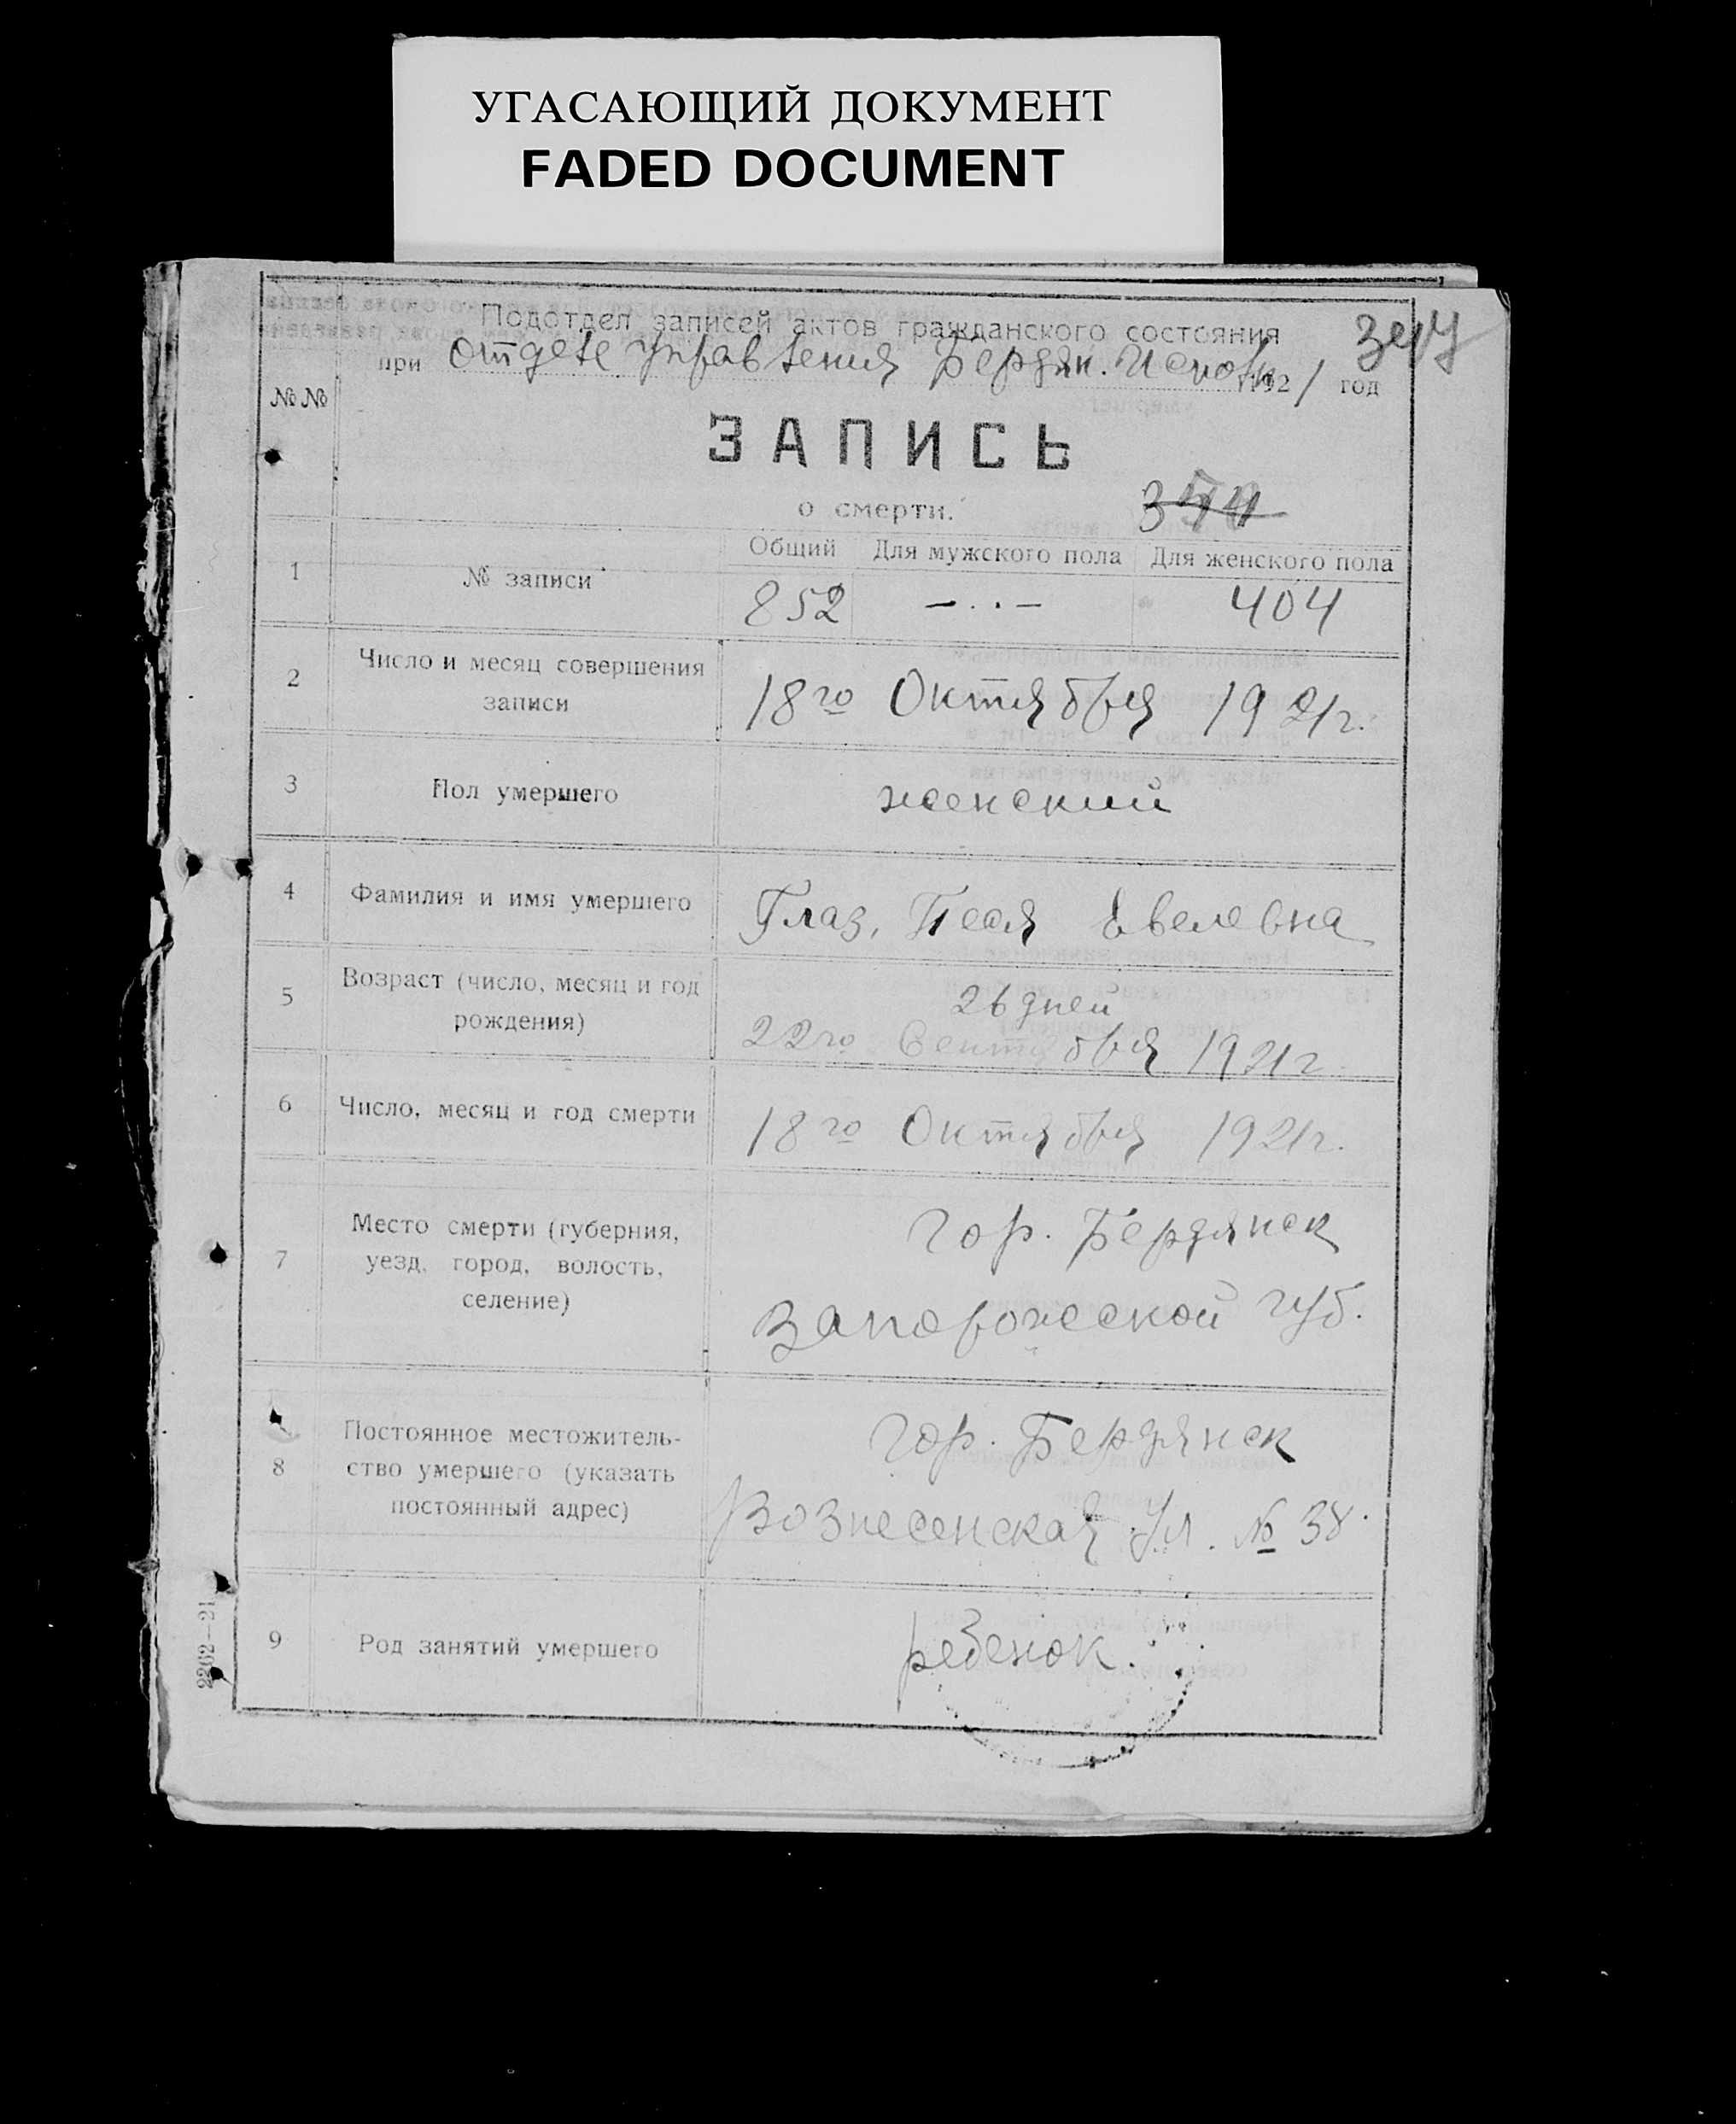 УГАСАЮЩИЙ ДОКУМЕНТ
FADED DOCUMENT
Подотдел записей актов гражданского состояния
при отделе управления Бердян. 192 1 год
№№
ЗАПИСЬ
о смерти.
Общий Для мужского пола Для женского пола
1 № записи 852 — . . — 404
2 Число и месяц совершения
записи
18го Октября 1921г.
3 Пол умершего женский
4 Фамилия и имя умершего Глаз, Песя Евелевна
5 Возраст (число, месяц и год
рождения)
26 дней
22го Сентября 1921г.
6 Число, месяц и год смерти 18го Октября 1921г.
7 Место смерти (губерния,
уезд, город, волость,
селение)
гор. Бердянск
Запорожской губ.
8 Постоянное местожитель-
ство умершего (указать
постоянный адрес)
гор. Бердянск
Вознесенская ул. № 38.
9 Род занятий умершего ребенок.
2262—21